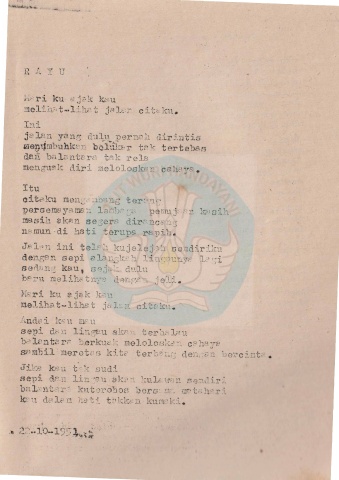 R A Y U
Mari ku ajak kau
melihat-lihat jalan citaku.
Ini
jalan yang dulu pernah dirintis
menumbuhkan belukar tak tertebas
dan balantara tak rela
menguak diri meloloskan cahaya.
Itu
citaku mengambang terung
persemayaman lambaga pemujaan kasih
masih akan segera dirancang
namun di hati terupa rapih.
Jalan ini telah kujelajah sendiriku
dengan sepi alangkah lingaunya lagi
sedang kau, sejak dulu
baru melihatnya dengan jeli.
Mari ku ajak kau
melihat-lihat jalan citaku.
Andai kau mau
sepi dan lingau akan terhalau
balantara berkuak meloloskan cahaya
sambil merotas kita terbang dengan bercinta.
Jika kau tak sudi
sepi dan lingau akan kulawan sendiri
balantara kuterobos bersama matahari
kau dalam hati takkan kumaki.
22-10-1951
TUT WURI HANDAYANI